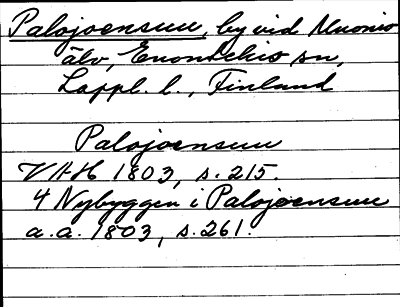 Palojoensuu, by vid Muonio
älv, Enontekis sn,
Lappl. l., Finland
Palojoensuu
VAH 1803, s. 215.
4 Nybyggen i Palojoensuu
a.a. 1803, s. 261.